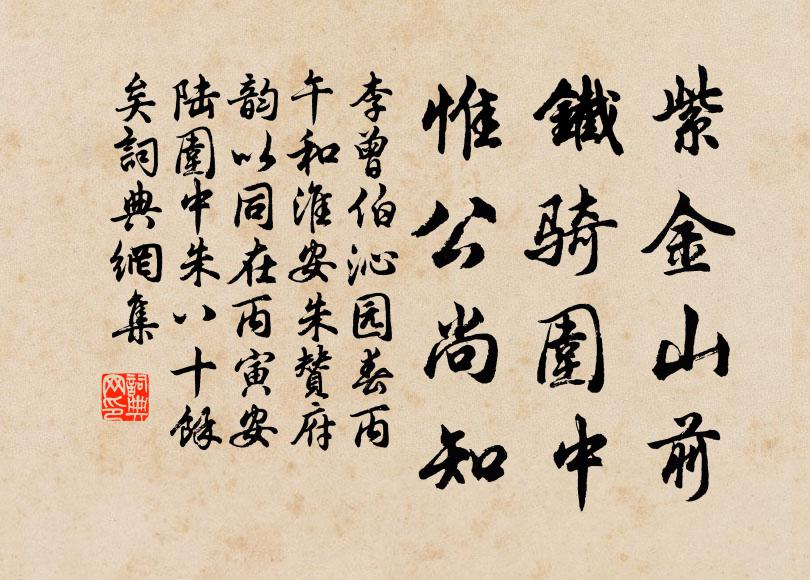 紫金山前
鐵騎圍中
惟公尚知
李曾伯沁园春丙
午和淮安朱贊府
韵以同在丙寅安
陆圍中朱八十餘
矣詞典網集
詞典
网印